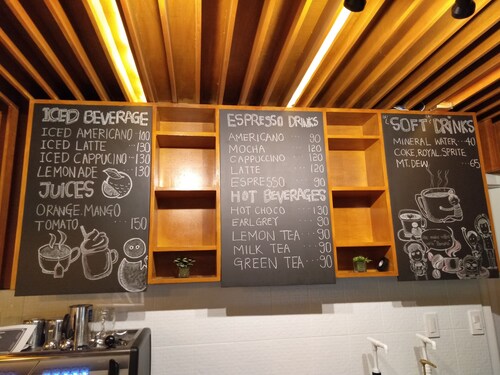 ICED BEVERAGE
ICED AMERICANO 100
ICED LATTE 130
ICED CAPPUCINO 130
LEMONADE 130
JUICES
ORANGE. MANGO
TOMATO 150
ESPRESSO DRINKS
AMERICANO 90
MOCHA 120
CAPPUCCINO 120
LATTE 120
ESPRESSO 90
HOT BEVERAGES
HOT CHOCO 130
EARL GREY 90
LEMON TEA 90
MILK TEA 90
GREEN TEA 90
SOFT DRINKS
MINERAL WATER 40
COKE, ROYAL, SPRITE
MT. DEW 65